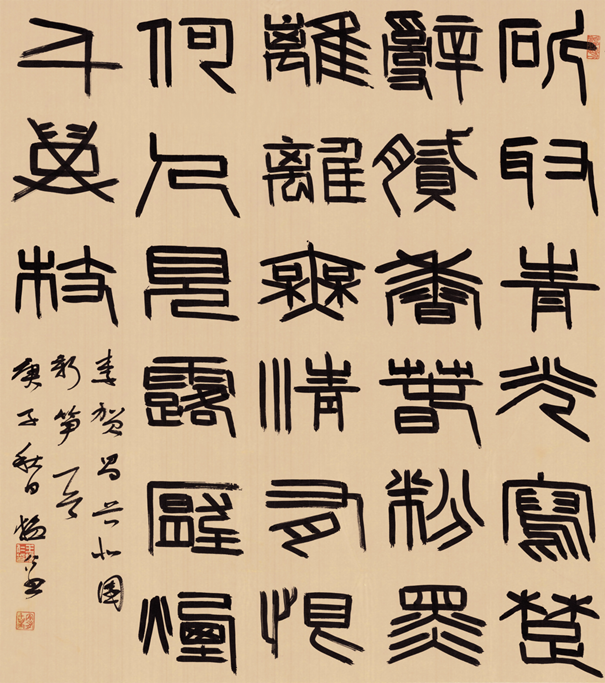 斫取青光寫楚
辭膩香春粉黑
離離無情有恨
何人見露壓煙
千萬枝
李賀昌谷北園
新筍一首
庚子秋日